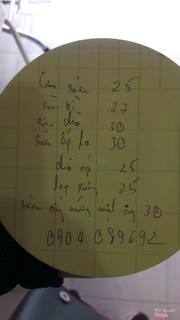 Cơm sườn 25
Sườn bì 27
Sườn chả 30
Sườn ốp la 30
đùi gà 25
lạp xưởng 25
Sườn cây nướng mật ong 30
0904 089692